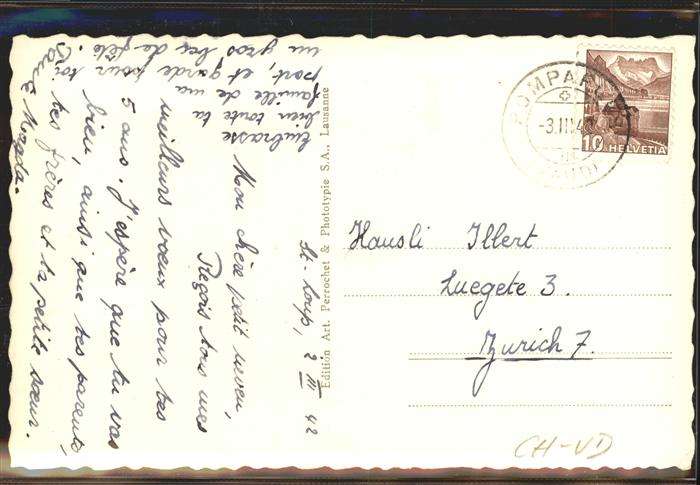 St-Loup, 2 III 42
Mon chère petit neveu,
Reçois tous mes
meilleurs vœux pour tes
5 ans. J'espère que tu vas
bien, ainsi que tes parents,
tes frères et ta petite sœur.
Embrasse
bien toute ta
famille de ma
part, et garde pour toi
un gros bec de fête.
Tante Magda.
Edition Art. Perrochet & Phototypie S.A., Lausanne
POMPAPLES
-3.III.42
(VAUD)
10 HELVETIA
Hansli Illert
Luegete 3.
Zurich 7.
CH-VD